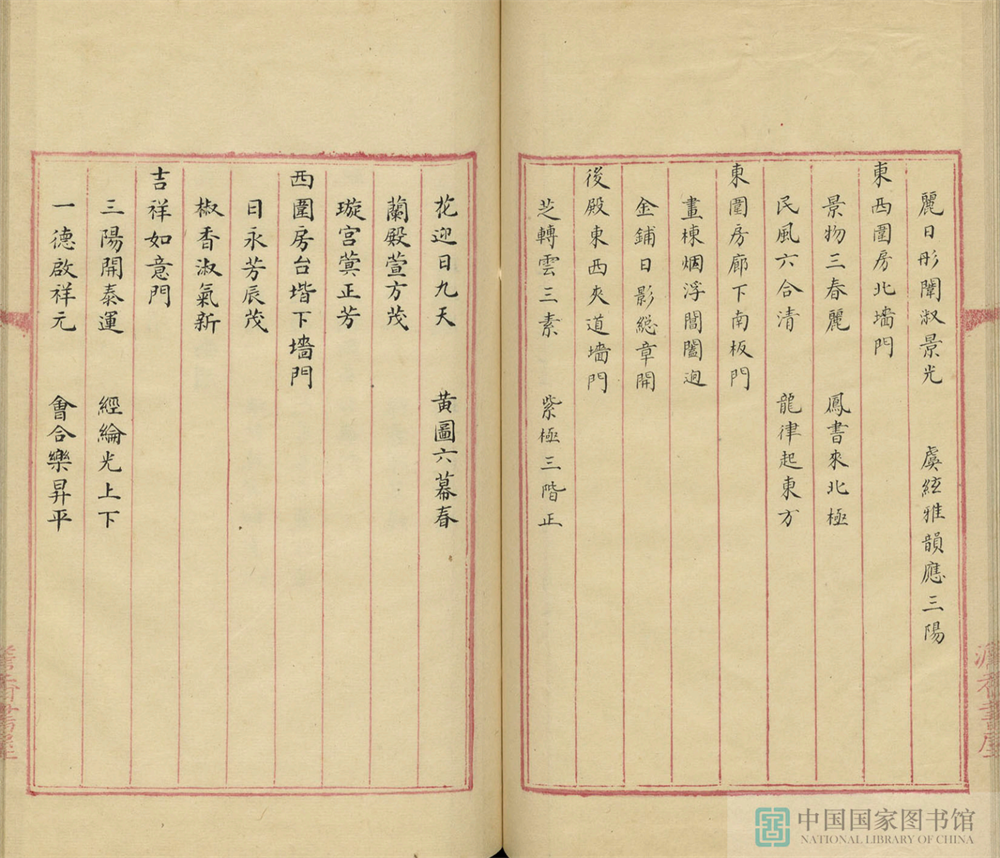 麗日彤闈淑景光　虞絃雅韻應三陽
東西圍房北墻門
景物三春麗　鳳書來北極
民風六合清　龍律起東方
東圍房廊下南板門
畫棟烟浮閶闔迥
金鋪日影総章開
後殿東西夾道墻門
芝轉雲三素　紫極三階正
花迎日九天　黄圖六幕春
蘭殿萱方茂
璇宮蓂正芳
西圍房台堦下墻門
日永芳辰茂
椒香淑氣新
吉祥如意門
三陽開泰運　經綸光上下
一德啟祥元　會合樂昇平
中国国家图书馆
NATIONAL LIBRARY OF CHINA